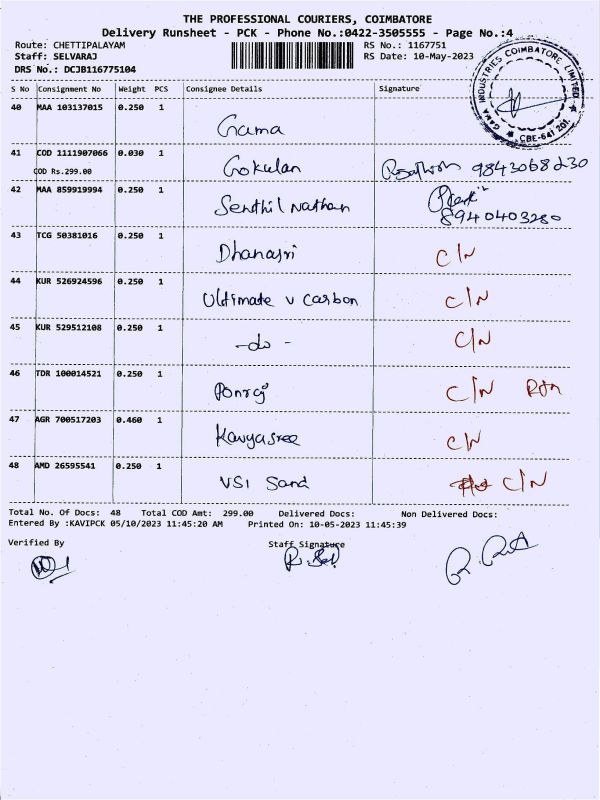 THE PROFESSIONAL COURIERS, COIMBATORE
Delivery Runsheet - PCK - Phone No.:0422-3505555 - Page No.:4
Route: CHETTIPALAYAM RS No.: 1167751
Staff: SELVARAJ RS Date: 10-May-2023
DRS No.: DCJB116775104
GAMA INDUSTRIES COIMBATORE LIMITED
CBE-641 201.
S No Consignment No Weight PCS Consignee Details Signature
40 MAA 103137015 0.250 1
Gama
41 COD 1111907066 0.030 1
COD Rs.299.00 Gokulan 9843068230
42 MAA 859919994 0.250 1
Senthil Nathan
8940403280
43 TCG 50381016 0.250 1
Dhanasri C/N
44 KUR 526924596 0.250 1
Ultimate v Carbon C/N
45 KUR 529512108 0.250 1
-do- C/N
46 TDR 100014521 0.250 1
Ponraj C/N
47 AGR 700517203 0.460 1
Kavyasree C/N
48 AMD 26595541 0.250 1
VSI Sand C/N
Total No. Of Docs: 48 Total COD Amt: 299.00 Delivered Docs: Non Delivered Docs:
Entered By :KAVIPCK 05/10/2023 11:45:20 AM Printed On: 10-05-2023 11:45:39
Verified By Staff Signature